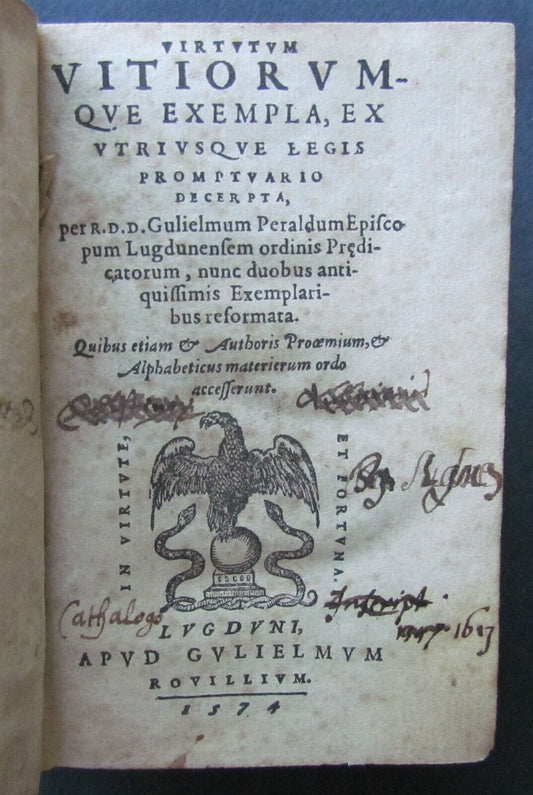 VIRTVTVM
VITIORVM-
QVE EXEMPLA, EX
VTRIVSQVE LEGIS
PROMPTVARIO
DECERPTA,
per R.D.D. Gulielmum Peraldum Episco
pum Lugdunensem ordinis Prędi-
catorum, nunc duobus anti-
quissimis Exemplari-
bus reformata.
Quibus etiam & Authoris Proœmium, &
Alphabeticus materierum ordo
accesserunt.
IN VIRTVTE,
ET FORTVNA.
Cathalogo
LVGDVNI,
1613
APVD GVLIELMVM
ROVILLIVM.
1574